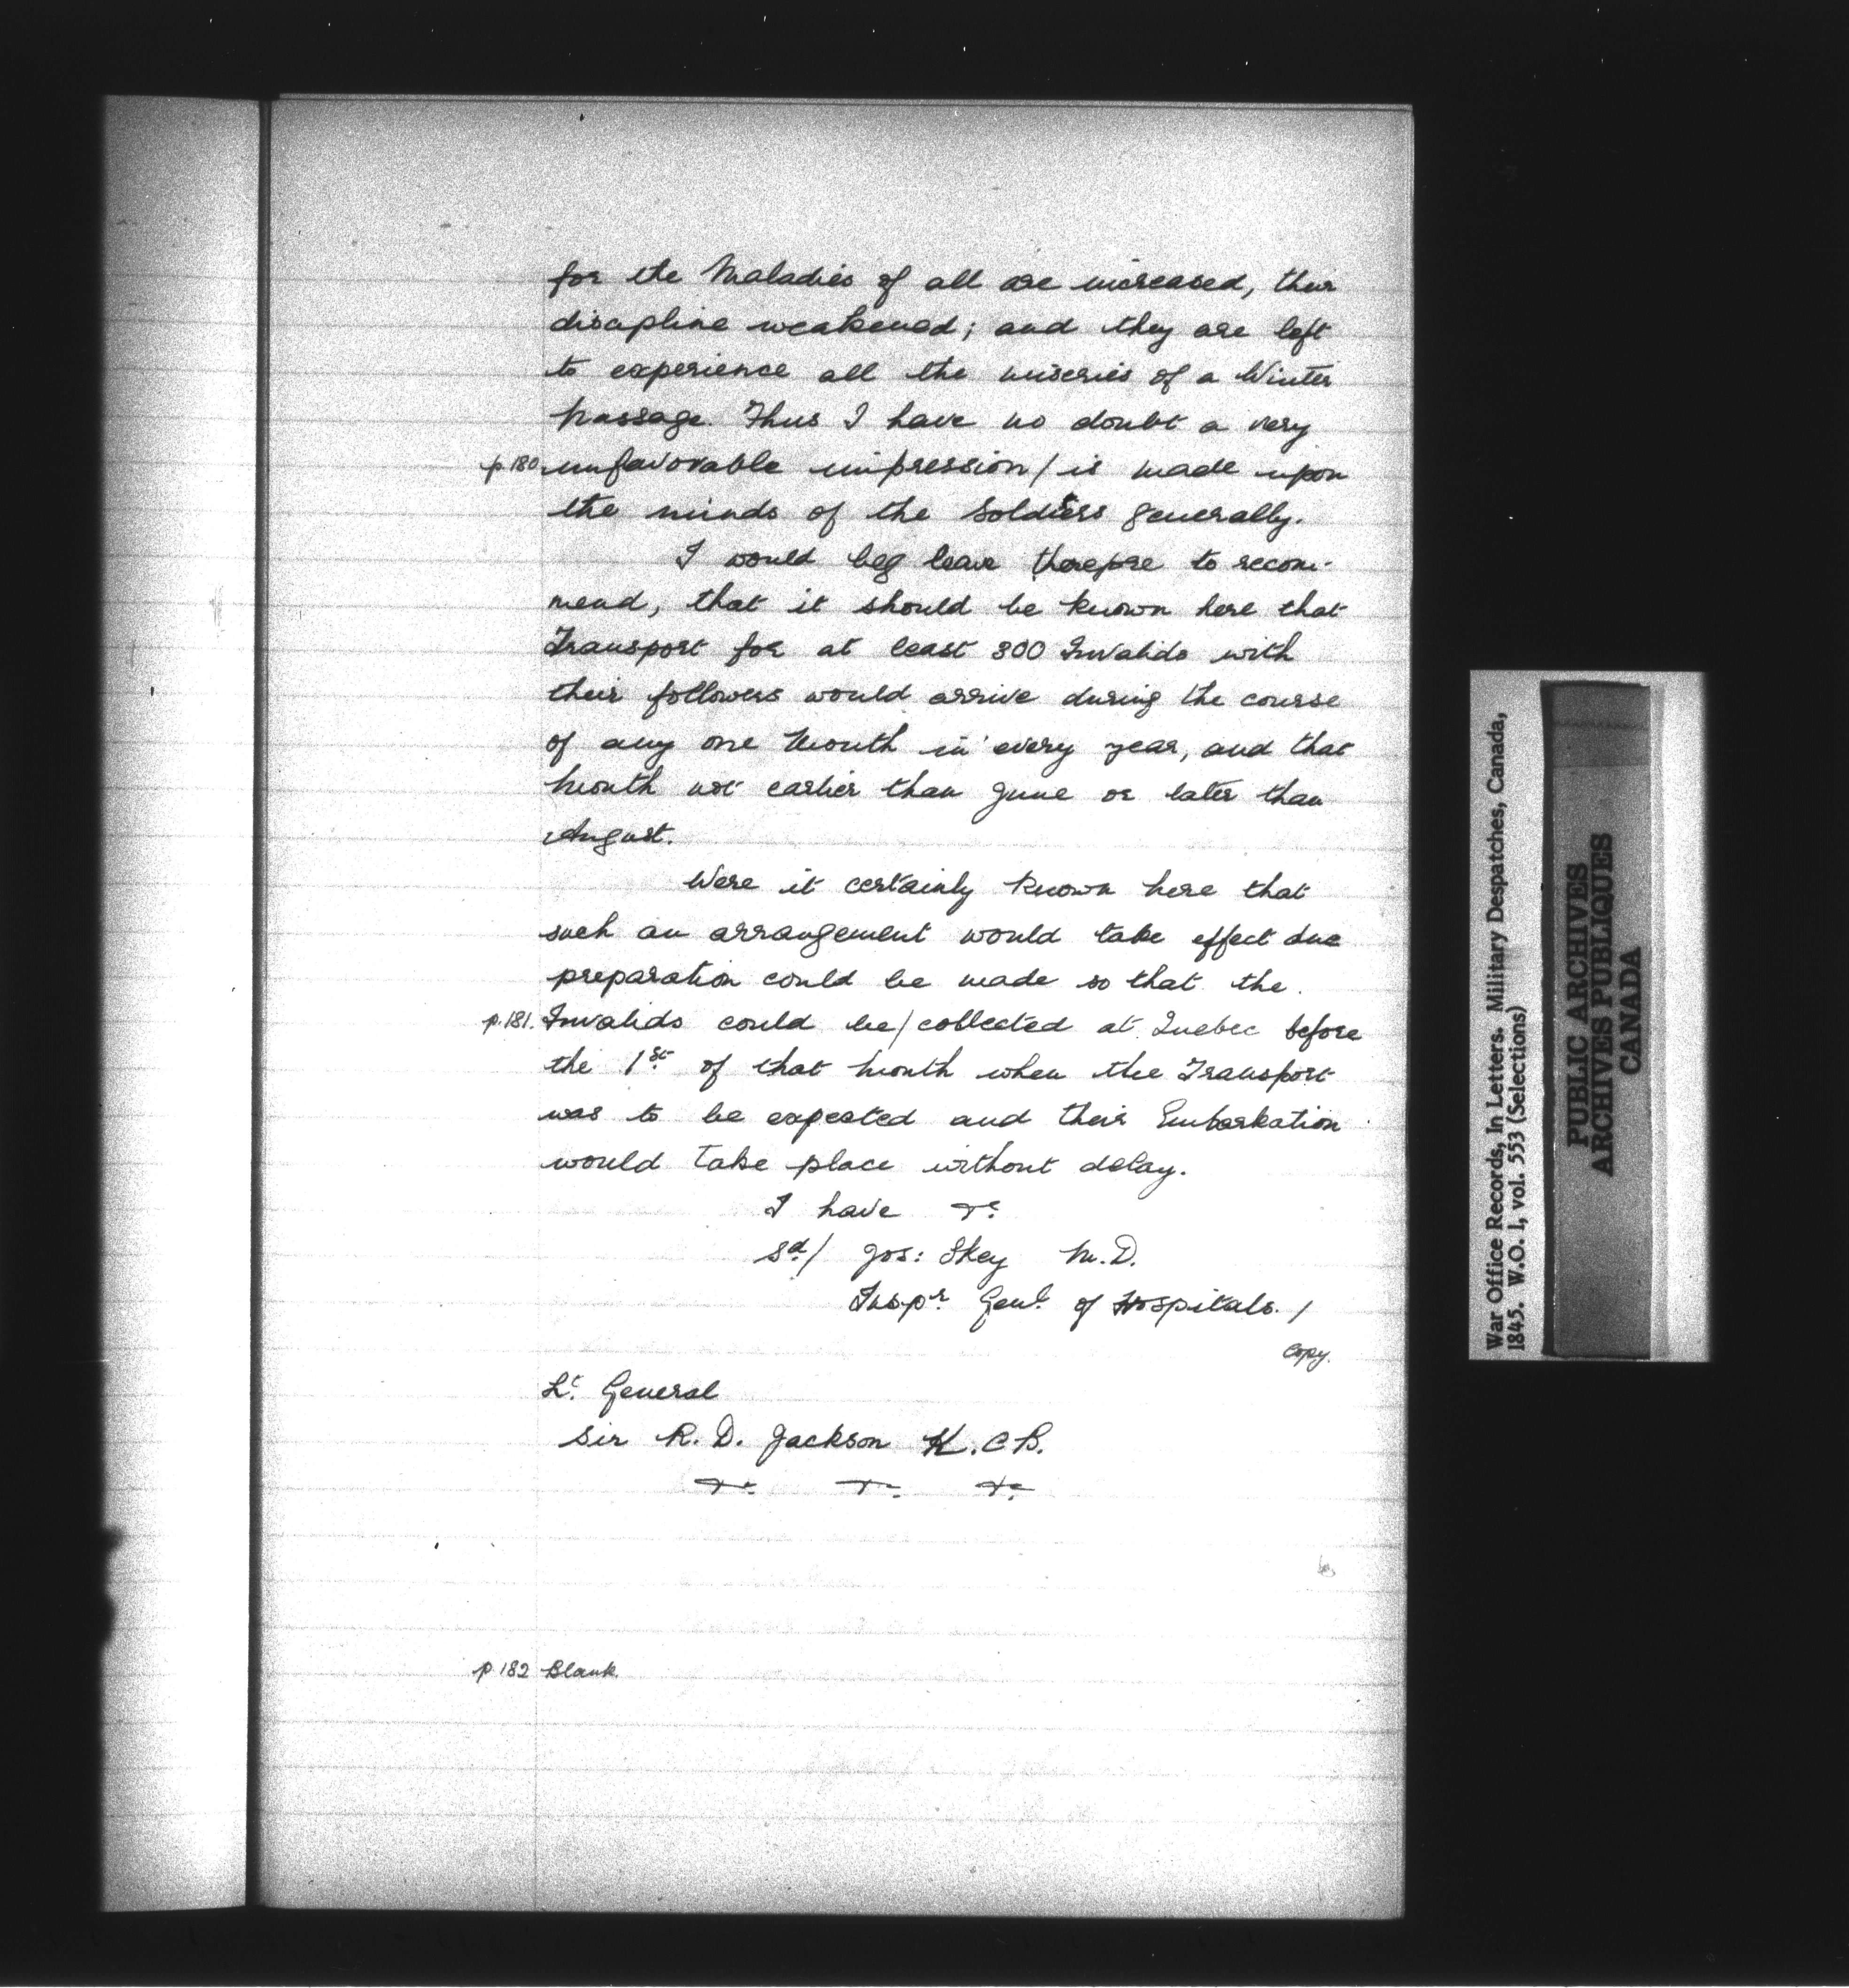 for the Maladies of all are increased, their
discipline weakened; and they are left
to experience all the miseries of a Winter
passage. Thus I have no doubt a very
p.180 unfavorable impression / is made upon
the minds of the Soldiers generally.
I would beg leave therefore to recom-
mend, that it should be known here that
Transport for at least 300 Invalids with
their followers would arrive during the course
of any one Month in every year, and that
Month not earlier than June or later than
August.
Were it certainly known here that
such an arrangement would take effect due
preparation could be made so that the
p.181. Invalids could be / collected at Quebec before
the 1st of that Month when the Transport
was to be expected and their Embarkation
would take place without delay.
I have &c
Sd/ Jos: Skey M.D.
Inspr Genl of Hospitals. /
Copy.
Lt General
Sir R. D. Jackson K.C.B.
&c. &c. &c.
p.182 Blank.
War Office Records, In Letters. Military Despatches, Canada,
1845. W.O. 1, vol. 553 (Selections)
PUBLIC ARCHIVES
ARCHIVES PUBLIQUES
CANADA